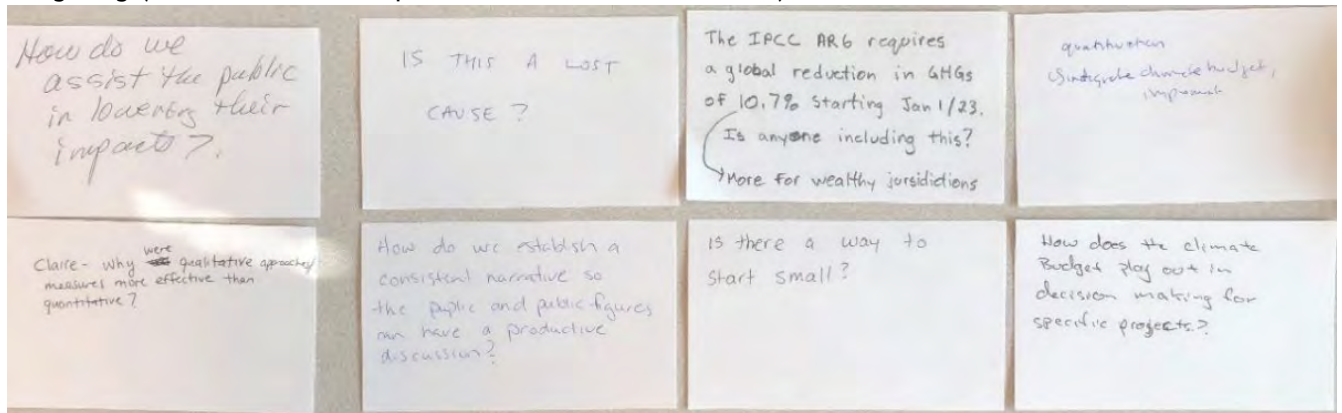 How do we
assist the public
in lowering their
impacts?
IS THIS A LOST
CAUSE?
The IPCC AR6 requires
a global reduction in GHGs
of 10.7% starting Jan 1/23.
Is anyone including this?
More for wealthy jorsidictions
budget,
Claire - why were qualitative approaches/
measures more effective than
quantitative?
How do we establish a
consistent narrative so
the public and public figures
can have a productive
discussion?
Is there a way to
start small?
How does the climate
Budget play out in
decision making for
specific projects?